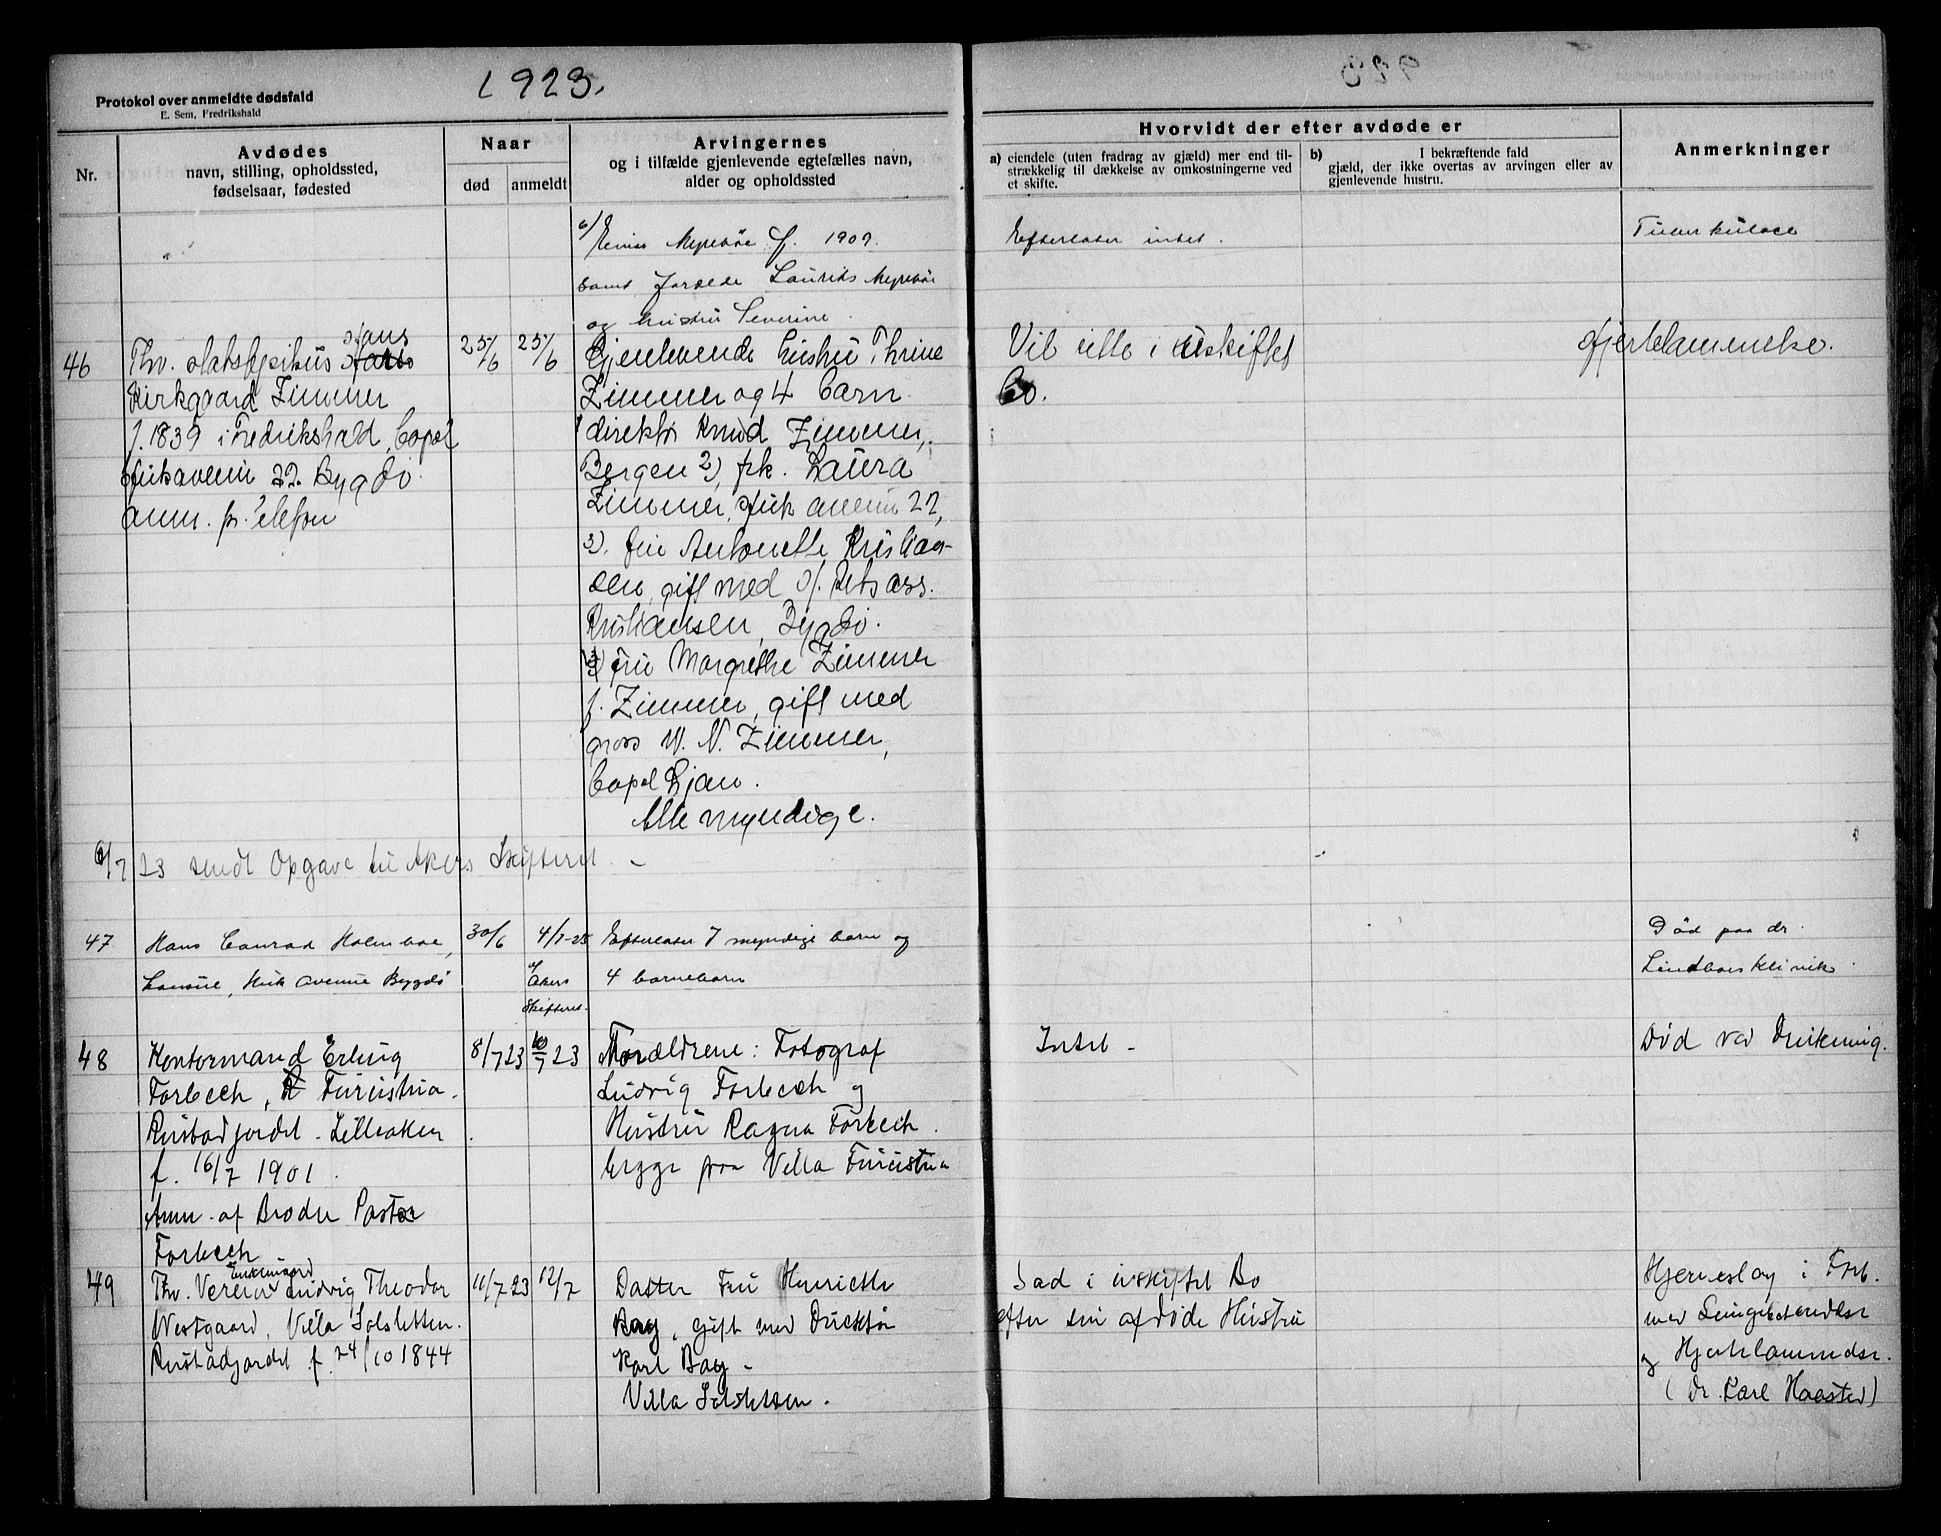 1923.
Protokol over anmeldte dødsfald
E. Sem, Fredrikshald
Nr.
Avdødes
navn, stilling, opholdssted,
fødselsaar, fødested
Naar
død
anmeldt
Arvingernes
og i tilfælde gjenlevende egtefælles navn,
alder og opholdssted
Hvorvidt der efter avdøde er
a) eiendele (uten fradrag av gjæld) mer end til-
strækkelig til dækkelse av omkostningerne ved
et skifte.
b) I bekræftende fald
gjæld, der ikke overtas av arvingen eller av
gjenlevende hustru.
Anmerkninger
6) Myrebøe f. 1909.
samt Forælde Laurits Myrebøe
og hustru Severine.
Efterlater intet.
Tuberkulose
46
Thv. Hans
Kirkgaard Zimmer
f. 1839 i Fredrikshald, bopæl
Hukavenü 22. Bygdö.
anm. pr. telefon
25/6
25/6
Gjenlevende hustru Thrine
Zimmer og 4 barn.
1 direktør Knud Zimmer,
Bergen 2), frk. Laura
Zimmer, Huk avenü 22,
3). fru Antonette Kristian-
sen, gift med Retsass.
Kristiansen, Bygdö.
4) Fru Margrethe Zimmer
f. Zimmer, gift med
gross W. N. Zimmer,
bopæl Ljan.
Alle myndige.
Vil sitte i uskiftet
bo.
Hjertelammelse.
6/7 23 sendt Opgave til Akers Skifteret. -
47
Hans Conrad Holmboe,
Huk Avenue Bygdö
30/6
4/7-23
Akers
Skifteret.
Efterlater 7 myndige barn og
4 barnebarn
Død paa dr.
Lindboes klinik.
48
Kontormand Erling
Forbech, Furustua.
Rustadjordet. Lilleaker
f. 16/7 1901.
Anm. af Broder Pastor
Forbech
8/7 23
10/7 23
Forældrene: Fotograf
Ludvig Forbech og
Hustru Ragna Forbech.
begge paa Villa Furustua
Intet -
Død ved Drukning.
49
Enkemand
Thv. Ludvig Theodor
Westgaard, Villa Solsletten.
Rustadjordet f. 24/10 1844
11/7 23
12/7
Datter Fru Henriette
Bay, gift med Direktør
Karl Bay -
Villa Solsletten.
Sad i uskiftet Bo
efter sin afdøde Hustru
Hjerneslag i Forb.
med Lungebetændelse
og Hjertelammelse.
(Dr. Karl Haasted)